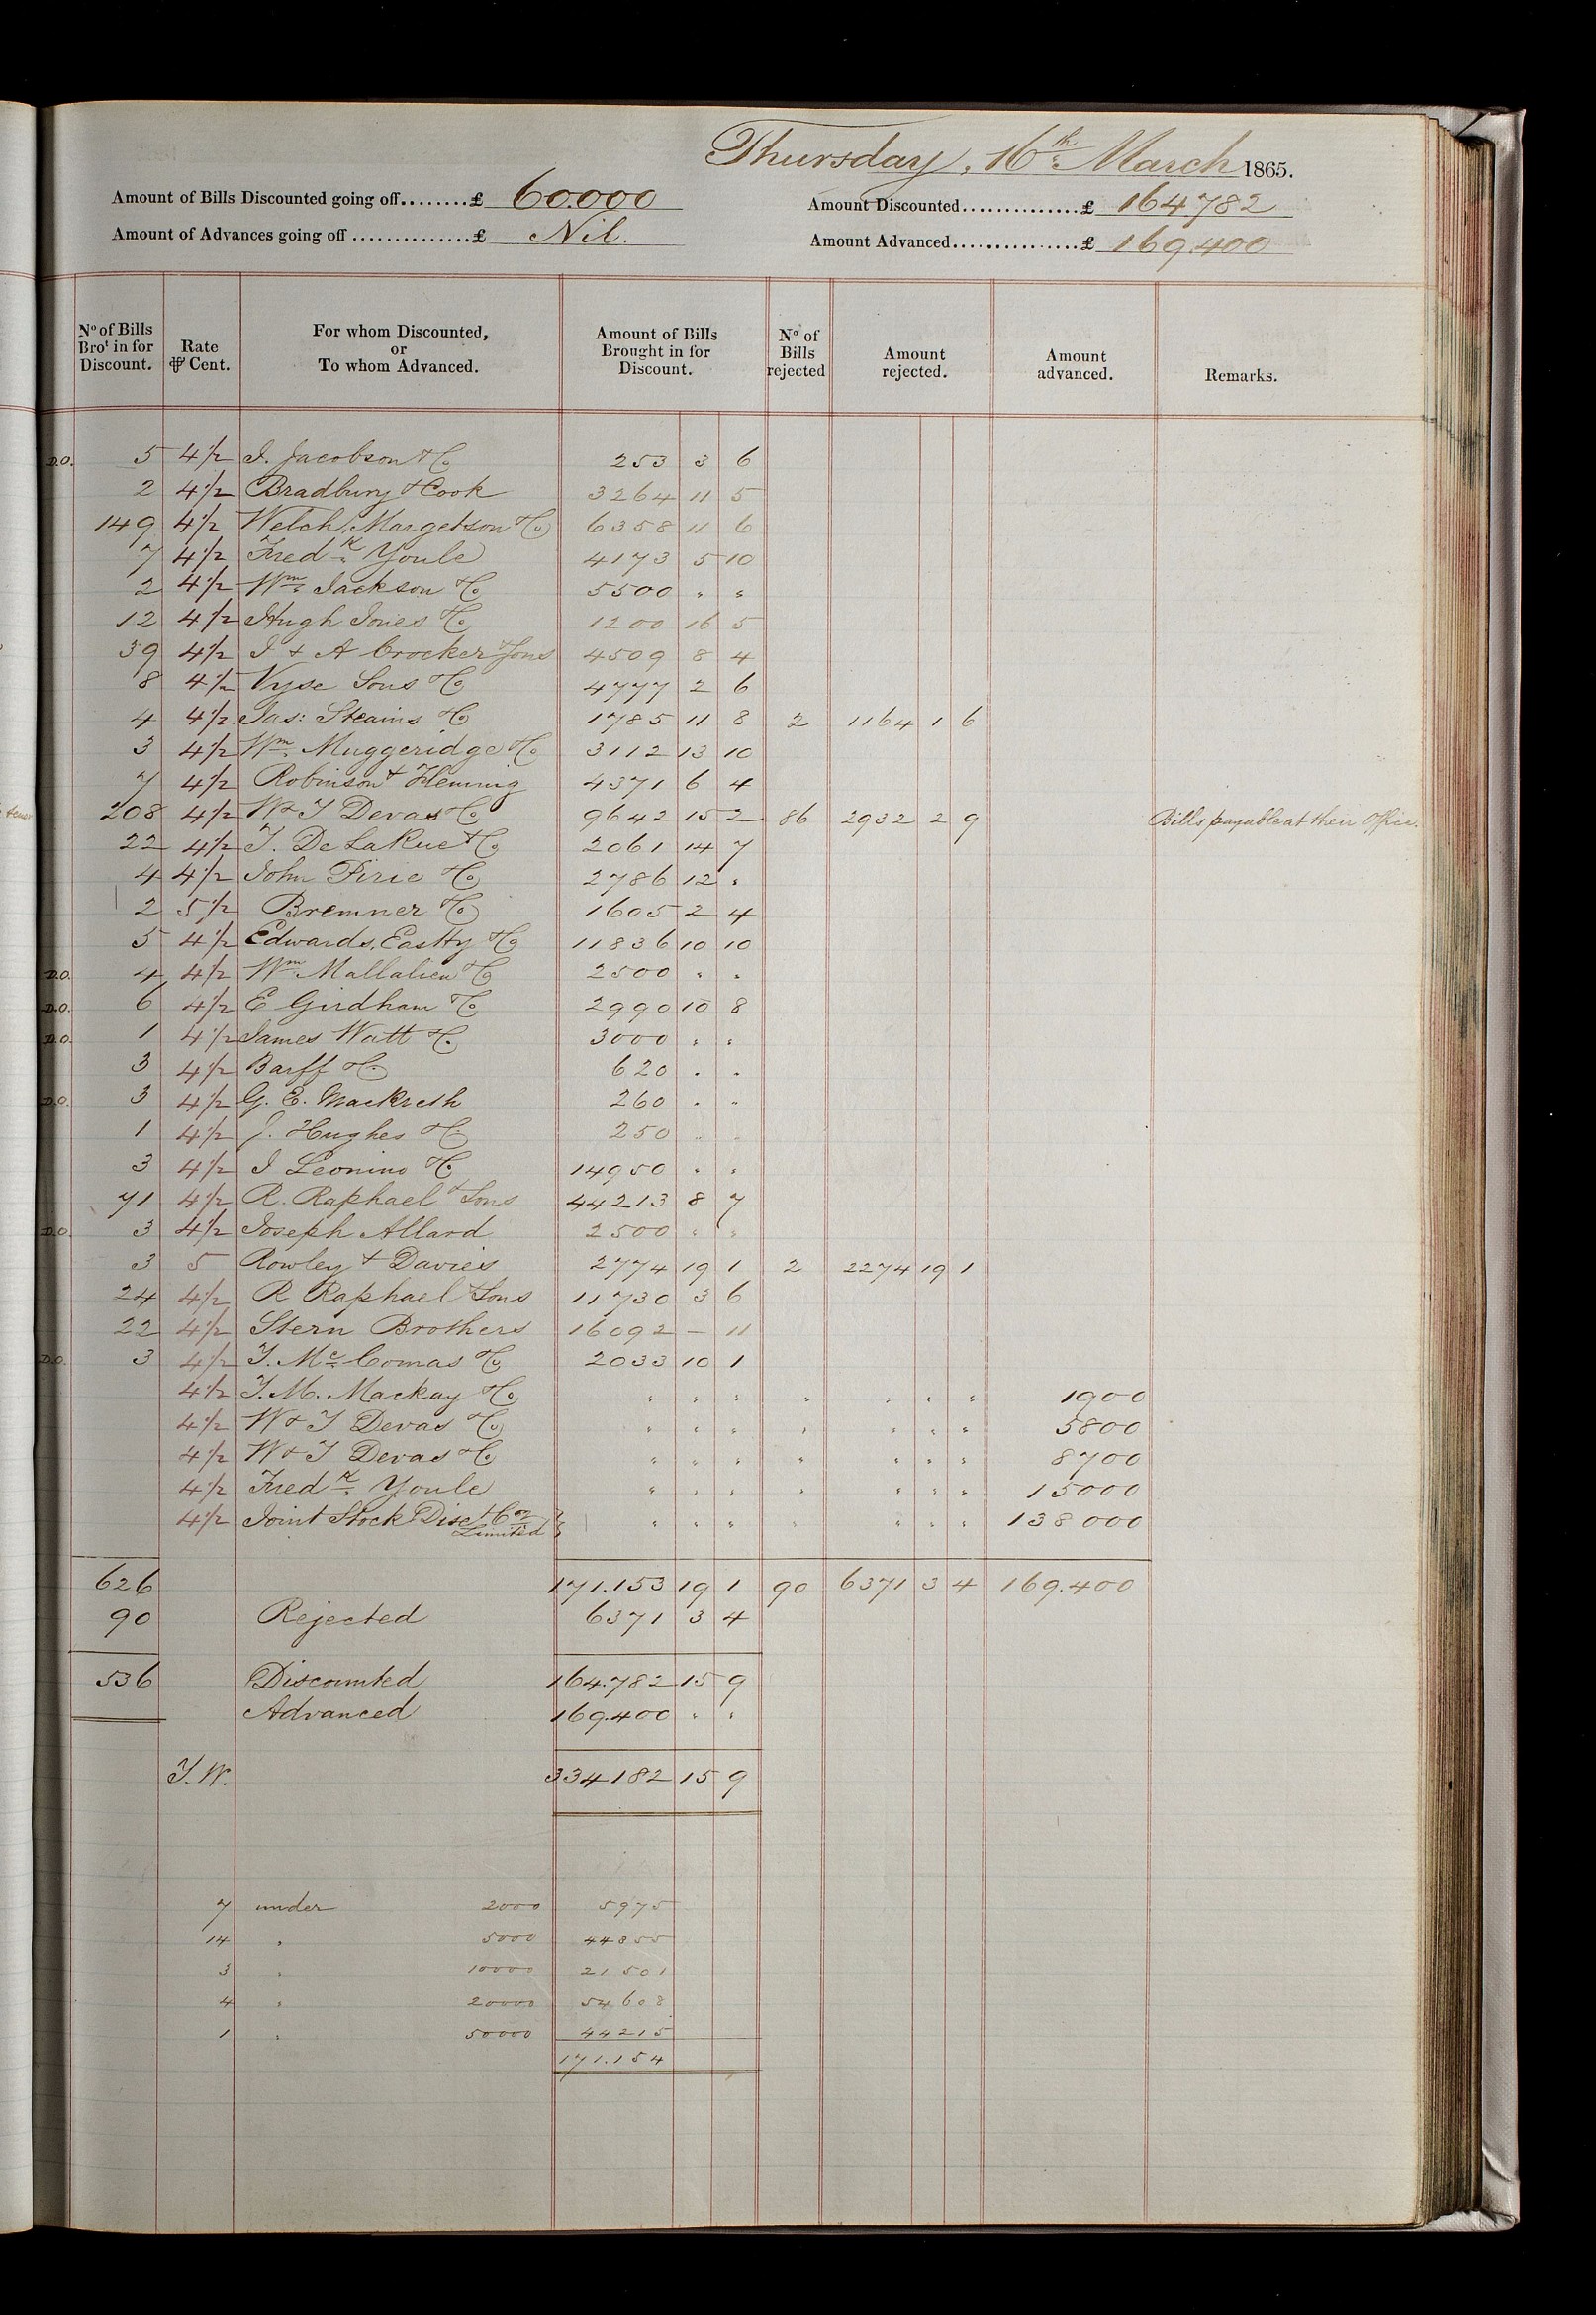 Thursday, 16th March 1865.
Amount of Bills Discounted going off........£ 60.000 Amount Discounted..............£ 164782
Amount of Advances going off ..............£ Nil. Amount Advanced................£ 169.400
No of Bills Brot in for Discount. Rate ⅌ Cent. For whom Discounted, or To whom Advanced. Amount of Bills Brought in for Discount. No of Bills rejected Amount rejected. Amount advanced. Remarks.
D.O. 5 4 1/2 I. Jacobson & Co 253 3 6
2 4 1/2 Bradbury & Cook 3264 11 5
149 4 1/2 Welch, Margetson & Co 6358 11 6
7 4 1/2 Fredk Youle 4173 5 10
2 4 1/2 Wm Jackson & Co 5500 " "
12 4 1/2 Hugh Jones & Co 1200 16 5
39 4 1/2 I & A Crocker & Sons 4509 8 4
8 4 1/2 Vyse Sons & Co 4777 2 6
4 4 1/2 Jas: Steains & Co 1785 11 8 2 1164 1 6
3 4 1/2 Wm Muggeridge & Co 3112 13 10
7 4 1/2 Robinson & Fleming 4371 6 4
208 4 1/2 W & T Devas & Co 9642 15 2 86 2932 2 9 Bills payable at their Office.
22 4 1/2 T. De La Rue & Co 2061 14 7
4 4 1/2 John Pirie & Co 2786 12 "
2 5 1/2 Bremner & Co 1605 2 4
5 4 1/2 Edwards, Eastty & Co 11836 10 10
D.O. 4 4 1/2 Wm Mallalieu & Co 2500 " "
D.O. 6 4 1/2 E Girdham & Co 2990 10 8
D.O. 1 4 1/2 James Watt & Co 3000 " "
3 4 1/2 Barff & Co 620 " "
D.O. 3 4 1/2 G. E. Mackreth 260 " "
1 4 1/2 J. Hughes & Co 250 " "
3 4 1/2 I Leonino & Co 14950 " "
71 4 1/2 R. Raphael & Sons 44213 8 7
D.O. 3 4 1/2 Joseph Allard 2500 " "
3 5 Rowley & Davies 2774 19 1 2 2274 19 1
24 4 1/2 R Raphael & Sons 11730 3 6
22 4 1/2 Stern Brothers 16092 — 11
D.O. 3 4 1/2 T. Mc Comas & Co 2033 10 1
4 1/2 T. M. Mackay & Co " " " " " " " 1900
4 1/2 W & T Devas & Co " " " " " " " 5800
4 1/2 W & T Devas & Co " " " " " " " 8700
4 1/2 Fredk Youle " " " " " " " 15000
4 1/2 Joint Stock Disct Coy Limited } " " " " " " " 138000
626 171.153 19 1 90 6371 3 4 169.400
90 Rejected 6371 3 4
536 Discounted 164.782 15 9
Advanced 169.400 " "
T. W. 334182 15 9
7 under 2000 5975
14 " 5000 44855
3 " 10000 21501
4 " 20000 54608
1 " 50000 44215
171.154